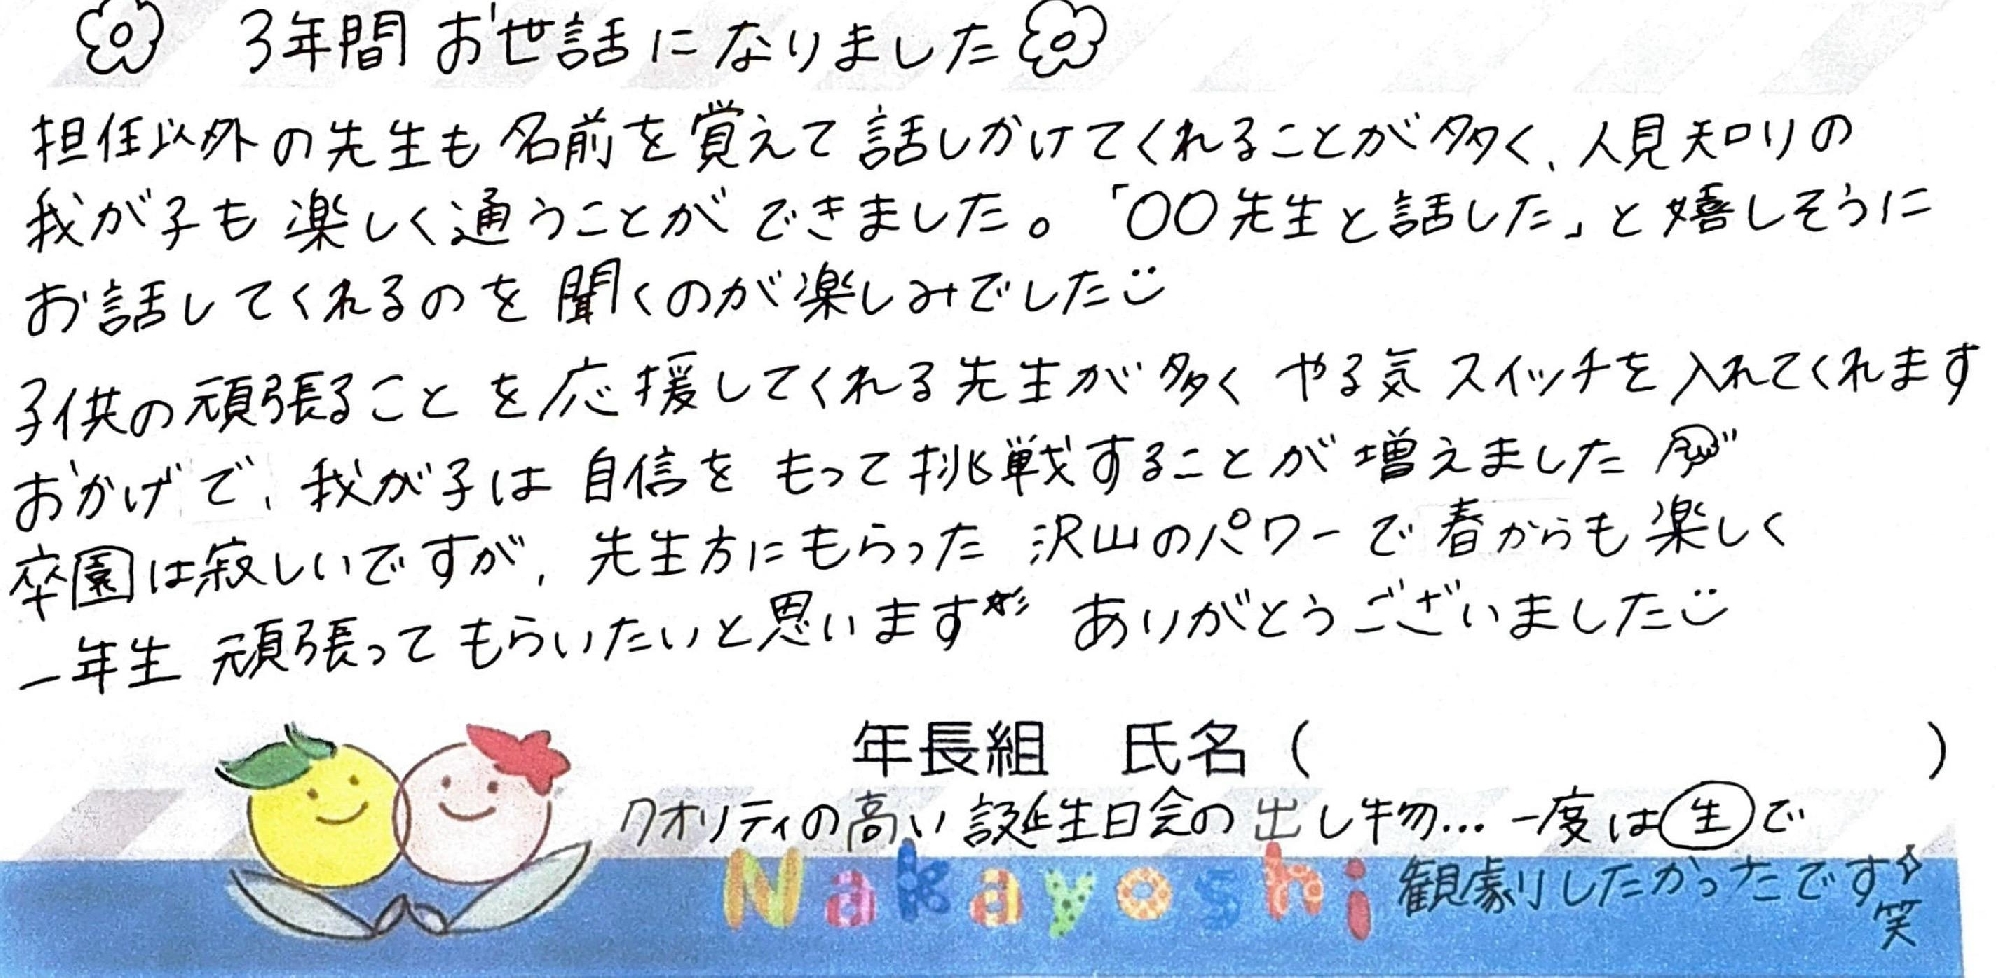 3年間 お世話になりました
担任以外の先生も名前を覚えて話しかけてくれることが多く、人見知りの
我が子も楽しく通うことができました。「〇〇先生と話した」と嬉しそうに
お話してくれるのを聞くのが楽しみでした
子供の頑張ることを応援してくれる先生が多く やる気スイッチを入れてくれます
おかげで、我が子は自信をもって挑戦することが増えました
卒園は寂しいですが、先生方にもらった沢山のパワーで春からも楽しく
一年生 頑張ってもらいたいと思います ありがとうございました
年長組 氏名( )
クオリティの高い誕生日会の出し物…一度は生で
観劇りしたかったです
笑
Nakayoshi